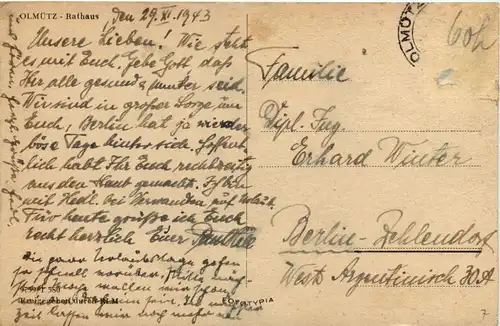 OLMÜTZ - Rathaus
den 29. XI. 1943
Unsere Lieben! Wie steht
es mit Euch. Gebe Gott daß
Ihr alle gesund u. munter seid.
Wir sind in großer Sorge um
Euch, Berlin hat ja wieder
böse Tage hinter sich. Hoffent-
lich habt Ihr Euch rechtzeitig
aus dem Staub gemacht. Ich bin
mit Hedl. bei Verwandten auf Urlaub.
Für heute grüße ich Euch
recht herzlich Euer
Die paar Urlaubstage gehen
so schnell vorüber,
wir
Zeit lassen wir noch mehr
OLMÜTZ
60h
Familie
Dipl. Ing.
Erhard Winter
Berlin-Zehlendorf
West Argentinisch 30A
FOTOTYPIA
7